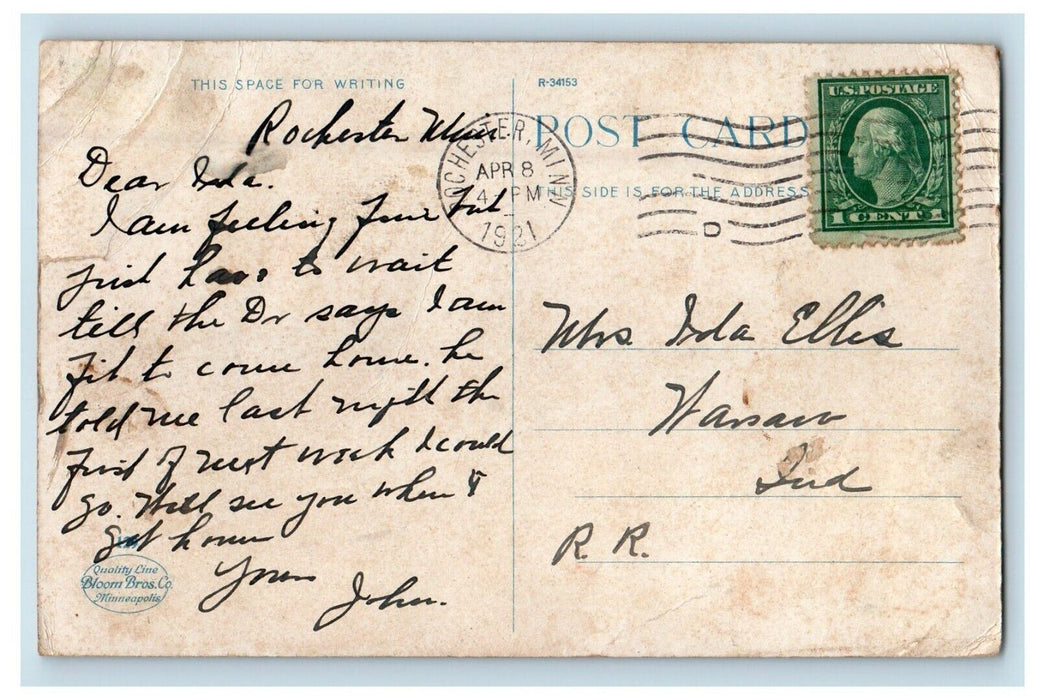 THIS SPACE FOR WRITING
Rochester Minn
Dear Ida.
I am feeling fine but
just have to wait
till the Dr says I am
fit to come home. he
told me last night the
first of next week I could
go. Will see you when I
get home
Yours
John.
Quality Line
Bloom Bros. Co.
Minneapolis
R-34153
POST CARD
THIS SIDE IS FOR THE ADDRESS
ROCHESTER, MINN
APR 8
4 PM
1921
D
U.S. POSTAGE
1 CENT 1
Mrs. Ida Ellis
Warsaw
Ind
R. R.